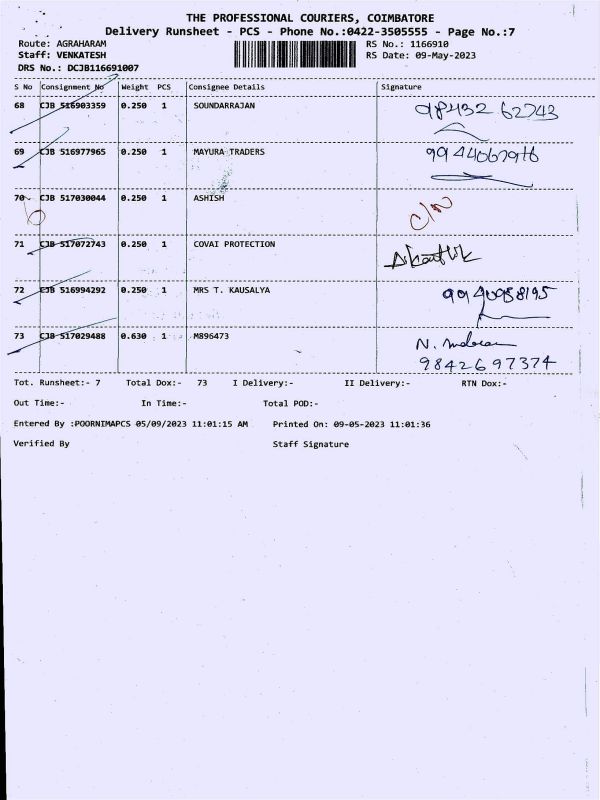 THE PROFESSIONAL COURIERS, COIMBATORE
Delivery Runsheet - PCS - Phone No.:0422-3505555 - Page No.:7
Route: AGRAHARAM RS No.: 1166910
Staff: VENKATESH RS Date: 09-May-2023
DRS No.: DCJB116691007
S No Consignment No Weight PCS Consignee Details Signature
68 CJB 516903359 0.250 1 SOUNDARRAJAN 98432 62743
69 CJB 516977965 0.250 1 MAYURA TRADERS
70 CJB 517030044 0.250 1 ASHISH C/N
71 CJB 517072743 0.250 1 COVAI PROTECTION
72 CJB 516994292 0.250 1 MRS T. KAUSALYA 9940958195
73 CJB 517029488 0.630 1 M896473 N.
9842697374
Tot. Runsheet:- 7 Total Dox:- 73 I Delivery:- II Delivery:- RTN Dox:-
Out Time:- In Time:- Total POD:-
Entered By :POORNIMAPCS 05/09/2023 11:01:15 AM Printed On: 09-05-2023 11:01:36
Verified By Staff Signature